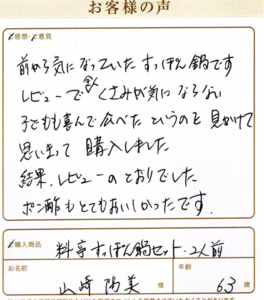 お客様の声
ご感想・ご意見
前から気になっていたすっぽん鍋です
レビューでくさみが気にならない
子どもも喜んで食べたというのを見かけて
思い切って購入しました
結果、レビューのとおりでした
ポン酢もとてもおいしかったです。
ご購入商品
料亭すっぽん鍋セット・2人前
お名前
山崎 陽美 様
年齢
63歳